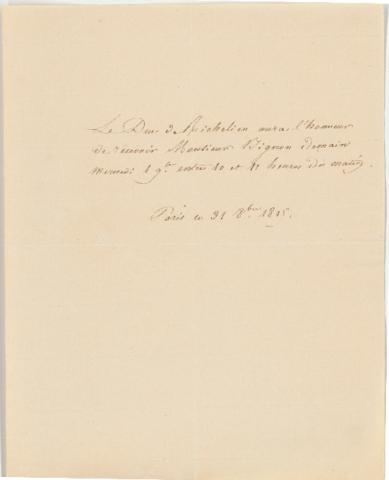 Le Duc de Richelieu aura l'honneur
de recevoir Monsieur Bignon demain
mercredi 1 9bre entre 10 et 11 heures du matin.
Paris ce 31 8bre 1815.